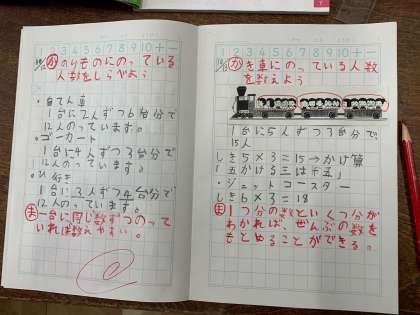 1 2 3 4 5 6 7 8 9 10 + −
か のりものにのっている
人数をしらべよう
・自てん車
1台に2人ずつ6台分で
12人のっています。
・ゴーカート
1台に4人ずつ3台分で
12人のっています。
1台に3人ずつ4台分で
12人のっています。
ま 一台に同じ数ずつのって
いれば数えやすい。
1 2 3 4 5 6 7 8 9 10 + −
か き車にのっている人数
を数えよう
1台に5人ずつ3台分で
15人
しき5×3=15→かけ算
「五かける三は十五」
・ジェットコースター
しき6×3=18
ま 1つ分の数といくつ分が
わかれば、ぜんぶの数を
もとめることができる。